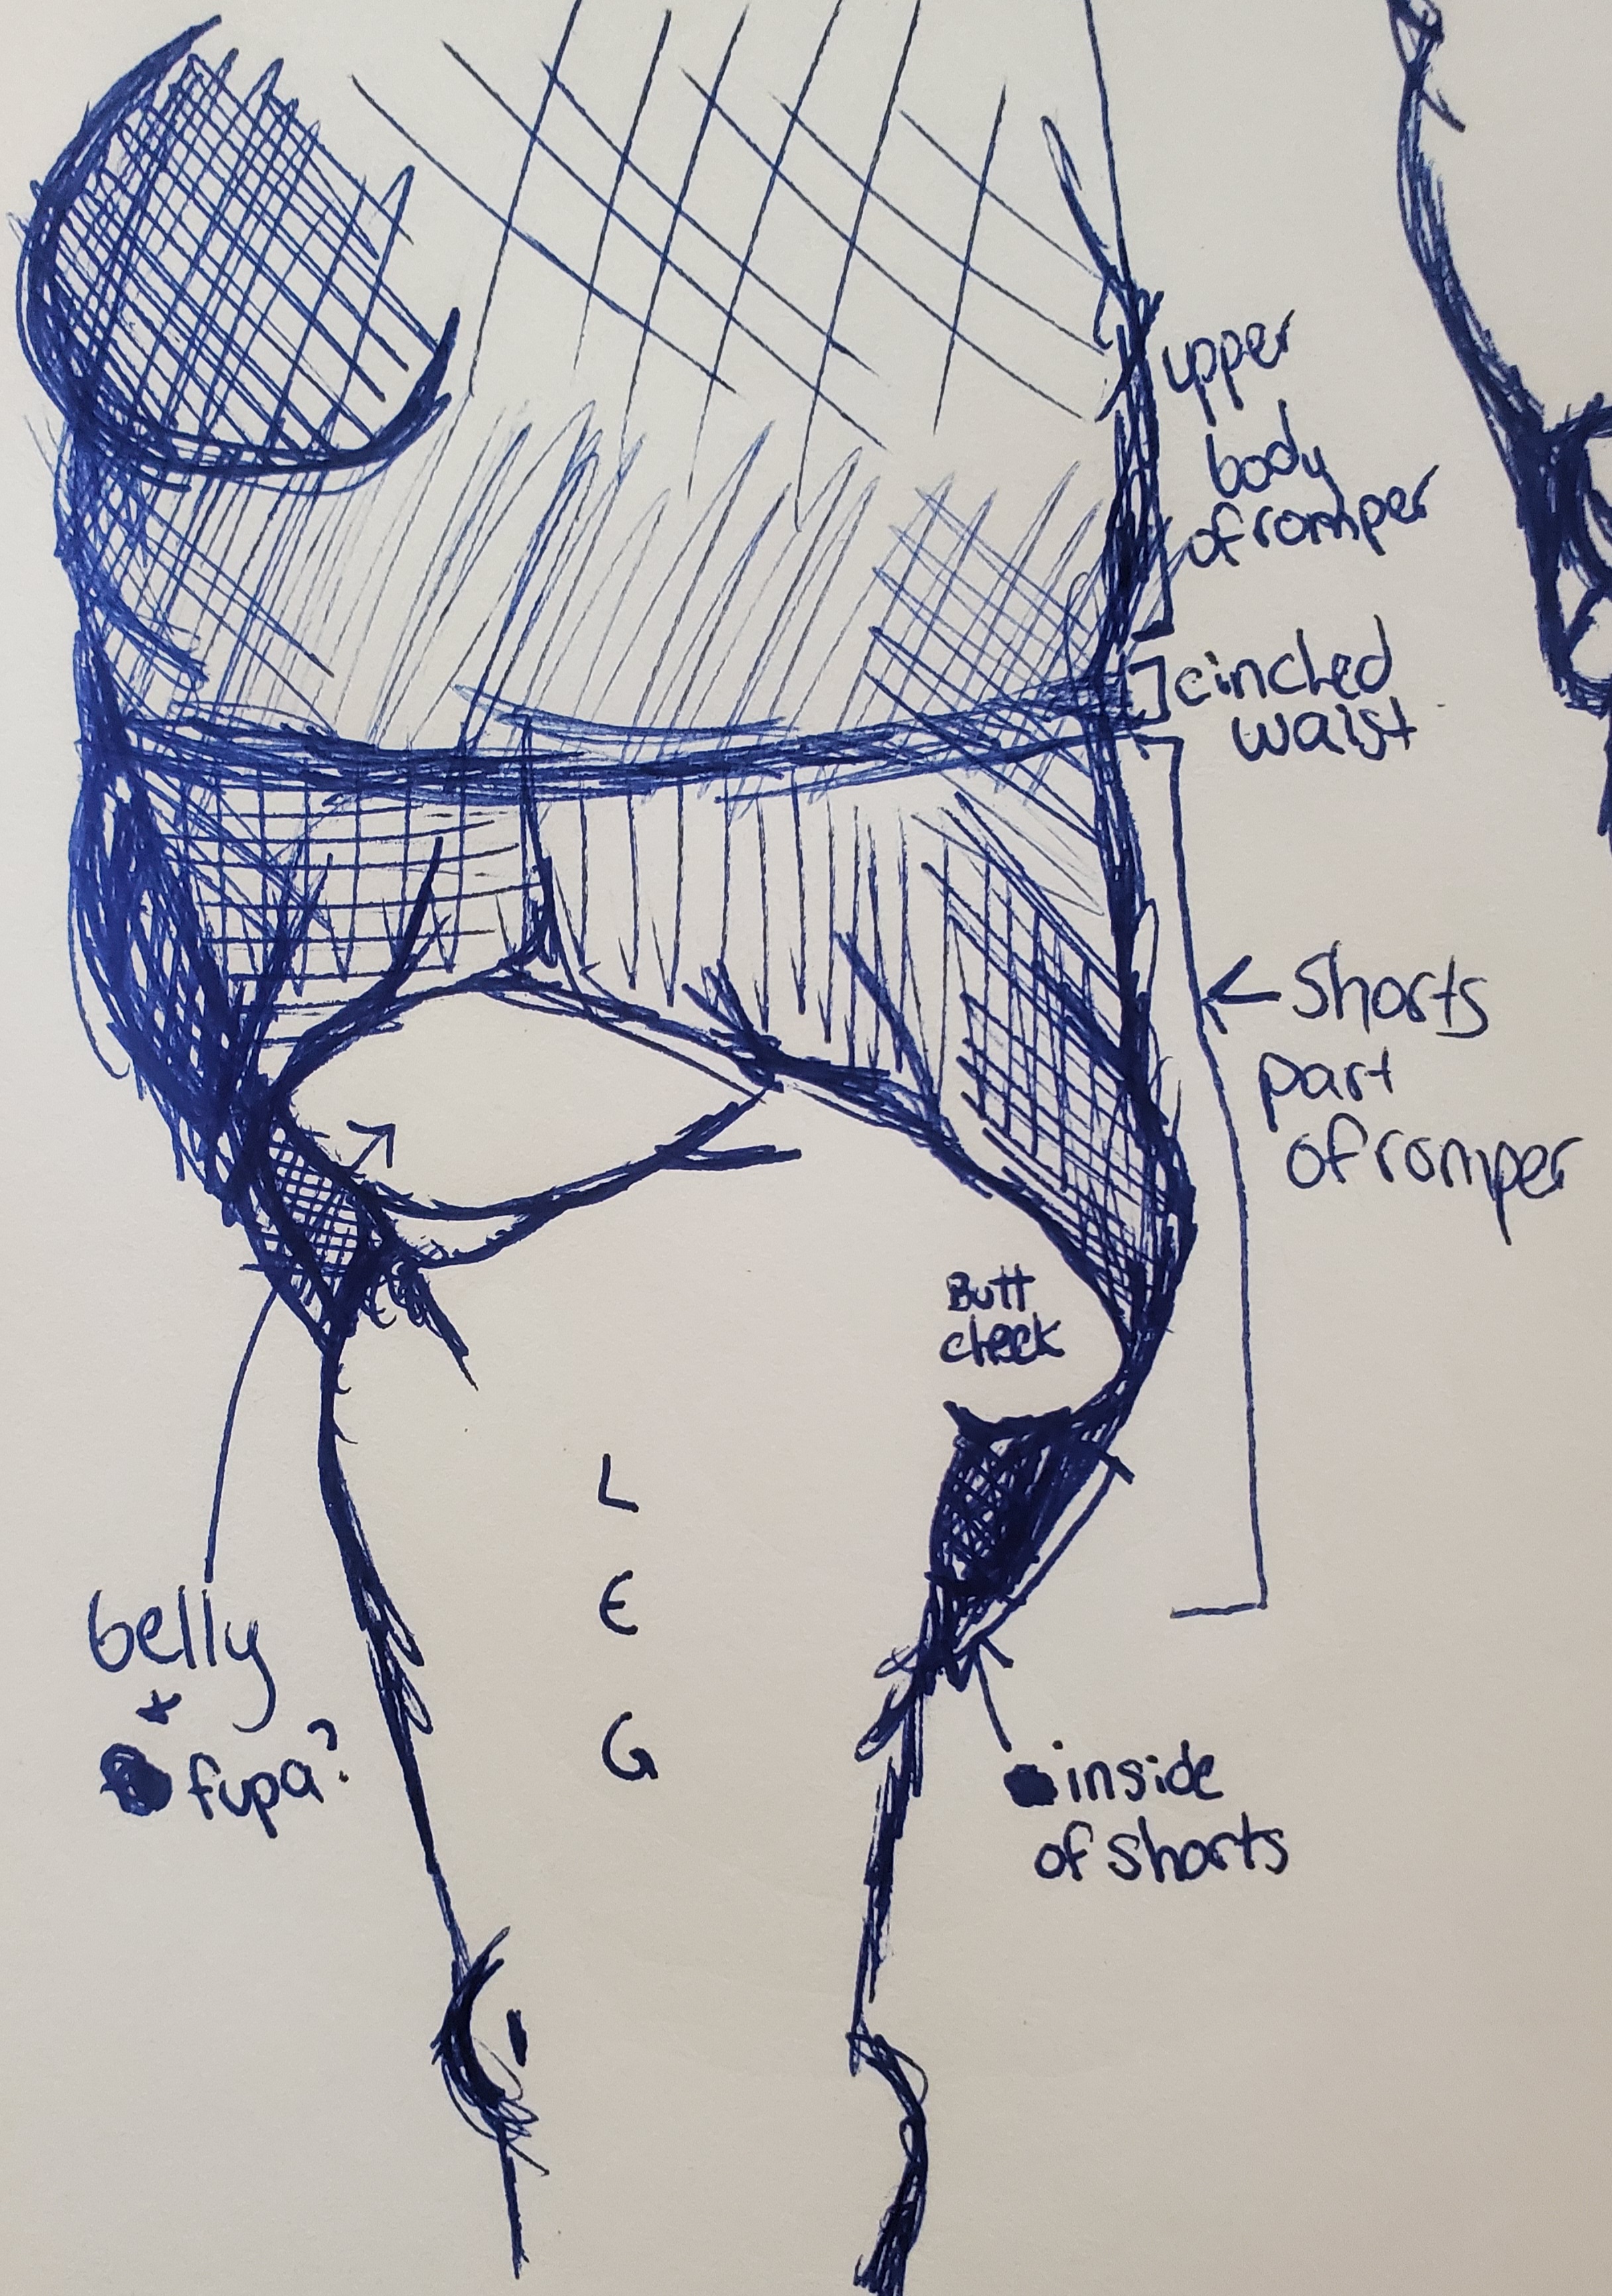 upper
body
of romper
cinched
waist
shorts
part
of romper
Butt
cheek
L
E
G
belly
+
fupa?
inside
of shorts